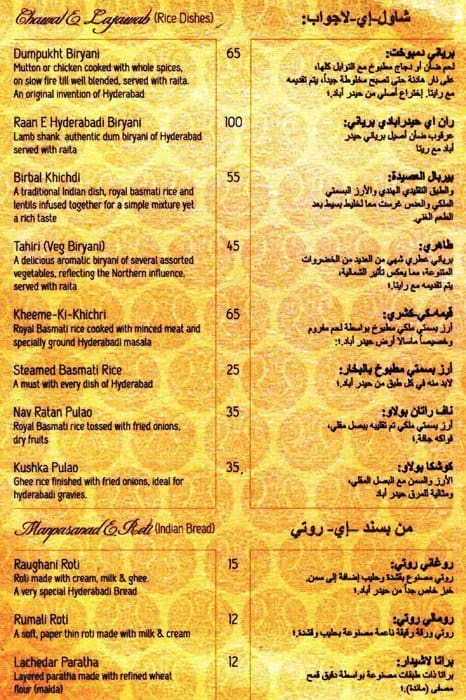 Chawal E Lajawab (Rice Dishes)
شاول-إي-لاجواب:
Dumpukht Biryani 65
Mutton or chicken cooked with whole spices,
on slow fire till well blended, served with raita.
An original invention of Hyderabad
برياني دمبوخت:
لحم ضأن أو دجاج مطبوخ مع التوابل كلها،
على نار هادئة حتى تصبح مخلوطة جيداً، يتم تقديمه
مع رايتا. إختراع أصلي من حيدر آباد.
Raan E Hyderabadi Biryani 100
Lamb shank authentic dum biryani of Hyderabad
served with raita
ران اي حيدرابادي برياني:
عرقوب ضأن أصيل برياني حيدر
آباد مع ريتا
Birbal Khichdi 55
A traditional Indian dish, royal basmati rice and
lentils infused together for a simple mixture yet
a rich taste
بيربال العصيدة:
والطبق التقليدي الهندي والأرز البسمتي
الملكي والعدس غرست معا لخليط بسيط بعد
الطعم الغني.
Tahiri (Veg Biryani) 45
A delicious aromatic biryani of several assorted
vegetables, reflecting the Northern influence,
served with raita
طاهري:
برياني عطري شهي من العديد من الخضروات
المتنوعة، مما يعكس تأثير الشمالية،
يتم تقديمه مع رايتا.
Kheeme-Ki-Khichri 65
Royal Basmati rice cooked with minced meat and
specially ground Hyderabadi masala
قيمه كي كشري:
أرز بسمتي ملكي مطبوخ بواسطة لحم مفروم
وخصيصاً ماسالا أرض حيدر آباد.
Steamed Basmati Rice 25
A must with every dish of Hyderabad
أرز بسمتي مطبوخ بالبخار:
لابد منه في كل طبق من حيدر آباد.
Nav Ratan Pulao 35
Royal Basmati rice tossed with fried onions,
dry fruits
ناف راتان بولاو:
أرز بسمتي ملكي تم تقليبه ببصل مقلي،
فواكه جافة.
Kushka Pulao 35
Ghee rice finished with fried onions, ideal for
hyderabadi gravies.
كوشكا بولاو:
الأرز والسمن مع البصل المقلي،
ومثالية للمرق حيدر آباد.
Manpasanad E Roti (Indian Bread)
من بسند -إي- روتي:
Raughani Roti 15
Roti made with cream, milk & ghee.
A very special Hyderabad Bread
روغاني روتي:
روتي مصنوع بقشدة وحليب إضافة إلى سمن.
خبز خاص جداً من حيدر آباد.
Rumali Roti 12
A soft, paper thin roti made with milk & cream
رومالي روتي:
روتي ورقة رقيقة ناعمة مصنوعة بحليب وقشدة.
Lachedar Paratha 12
Layered paratha made with refined wheat
flour (maida)
براتا لاشيدار:
براتا ذات طبقات مصنوعة بواسطة دقيق قمح
مصفى (مائدة).